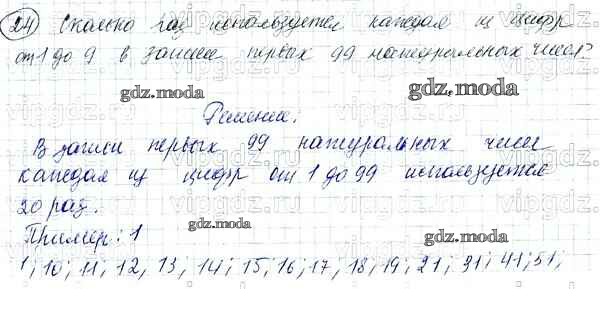 24) Сколько раз используется каждая из цифр
от 1 до 9 в записи первых 99 натуральных чисел?
gdz.moda
gdz.moda
Решение.
В записи первых 99 натуральных чисел
каждая из цифр от 1 до 99 используется
20 раз.
gdz.moda
gdz.moda
Пример: 1
1; 10; 11; 12, 13; 14; 15; 16; 17; 18; 19; 21; 31; 41; 51;